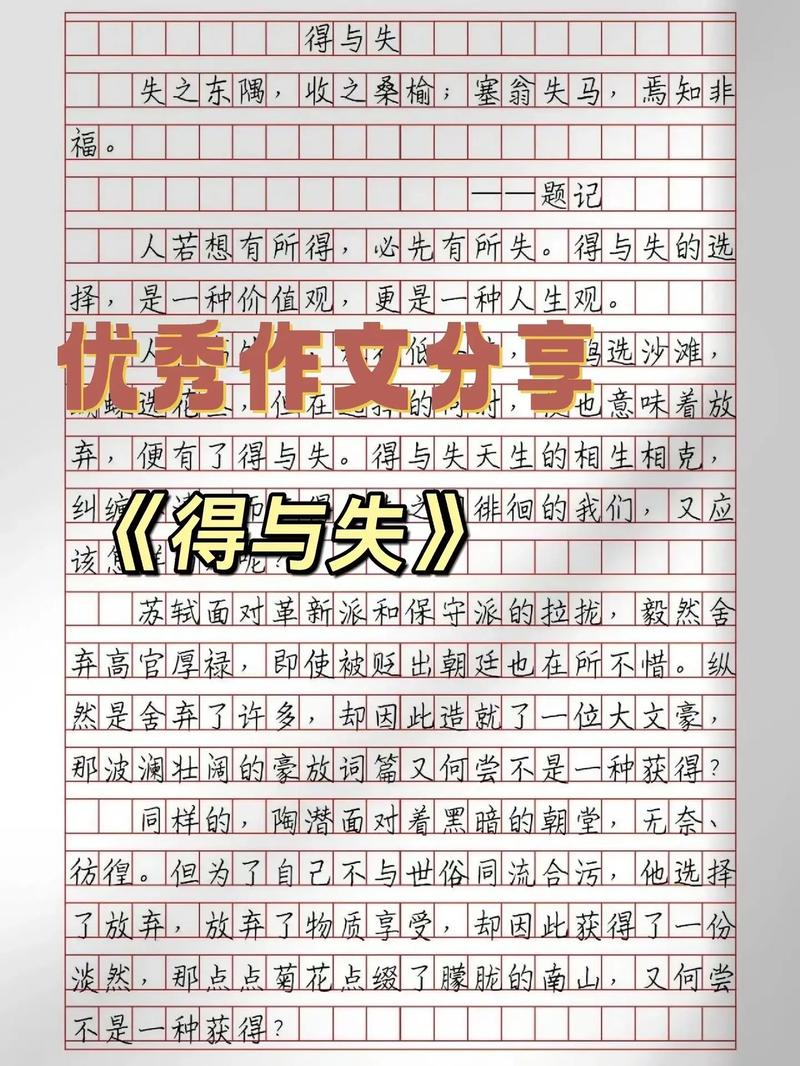 得与失
失之东隅，收之桑榆；塞翁失马，焉知非
福。
——题记
人若想有所得，必先有所失。得与失的选
择，是一种价值观，更是一种人生观。
优秀作文分享
人 低 选沙滩，
选花 ，但在选择的同时， 也意味着放
弃，便有了得与失。得与失天生的相生相克，
纠缠 徘徊的我们，又应
《得与失》
该怎样 呢？
苏轼面对革新派和保守派的拉拢，毅然舍
弃高官厚禄，即使被贬出朝廷也在所不惜。纵
然是舍弃了许多，却因此造就了一位大文豪，
那波澜壮阔的豪放词篇又何尝不是一种获得？
同样的，陶潜面对着黑暗的朝堂，无奈、
彷徨。但为了自己不与世俗同流合污，他选择
了放弃，放弃了物质享受，却因此获得了一份
淡然，那点点菊花点缀了朦胧的南山，又何尝
不是一种获得？